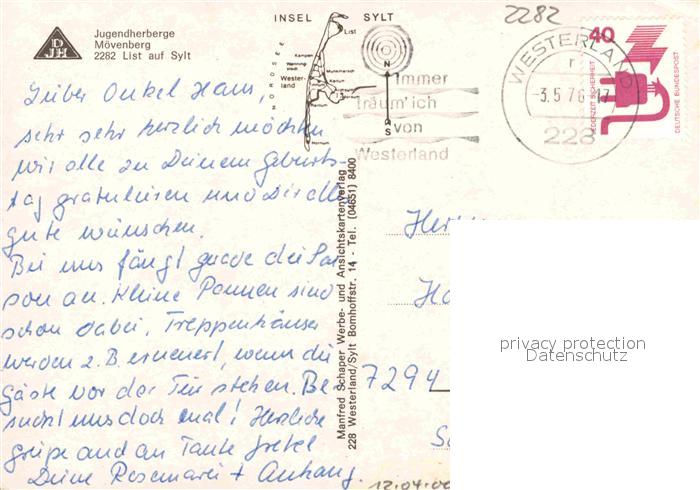 Jugendherberge
Mövenberg
2282 List auf Sylt
DJH
INSEL SYLT
NORDSEE
List
Kampen
Westerland
N
S
Immer
träum' ich
von
Westerland
2282
WESTERLAND
-3.5.76-17
228
40
JEDERZEIT SICHERHEIT
DEUTSCHE BUNDESPOST
Lieber Onkel Hans,
sehr sehr herzlich möchten
wir alle zu Deinem Geburts-
tag gratulieren und Dir alles
gute wünschen.
Bei uns fängt gerade die Sai-
son an. Kleine Pannen sind
schon dabei, Treppenhäuser
werden z.B. erneuert, wenn die
Gäste vor der Tür stehen. Be-
sucht uns doch mal! Herzliche
Grüße auch an Tante Gretel
Deine Rosemarei + Anhang.
Manfred Schaper Werbe- und Ansichtskartenverlag
228 Westerland/Sylt Bomhoffstr. 14 - Tel. (04651) 8400
7294
privacy protection
Datenschutz